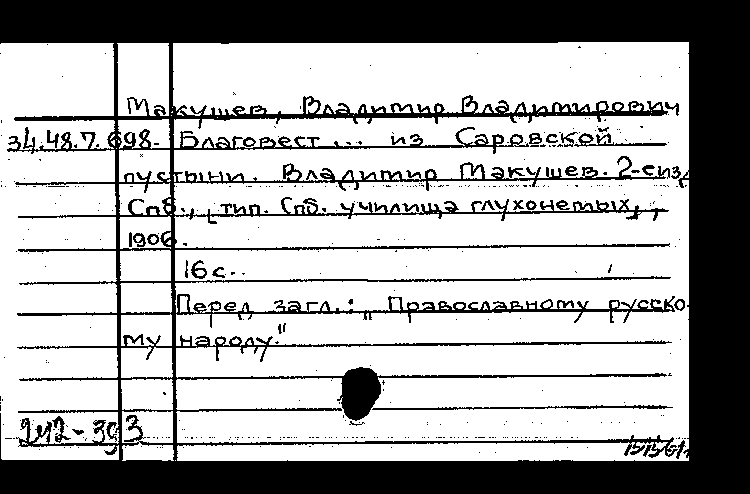 Макушев, Владимир Владимирович
34.48.7.698. Благовест ... из Саровской
пустыни. Владимир Макушев. 2-е изд
Спб., [тип. Спб. училища глухонемых],
1906.
16 с.
Перед загл.: „Православному русско-
му народу."
242-393